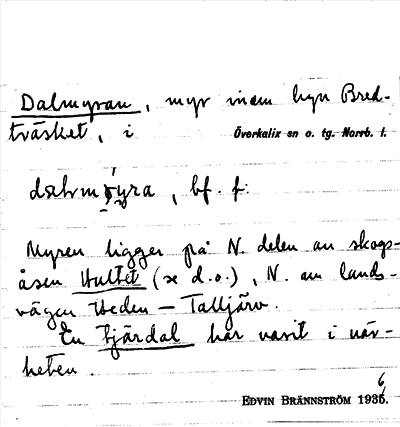 Dalmyran, myr inom byn Bred-
träsket, i Överkalix sn o. tg. Norrb. l.
bf. f.
Myren ligger på N. delen av skogs-
åsen Hultet (se d.o.), N. om lands-
vägen Heden – Talljärv.
En tjärdal har varit i när-
heten.
EDVIN BRÄNNSTRÖM 1936.